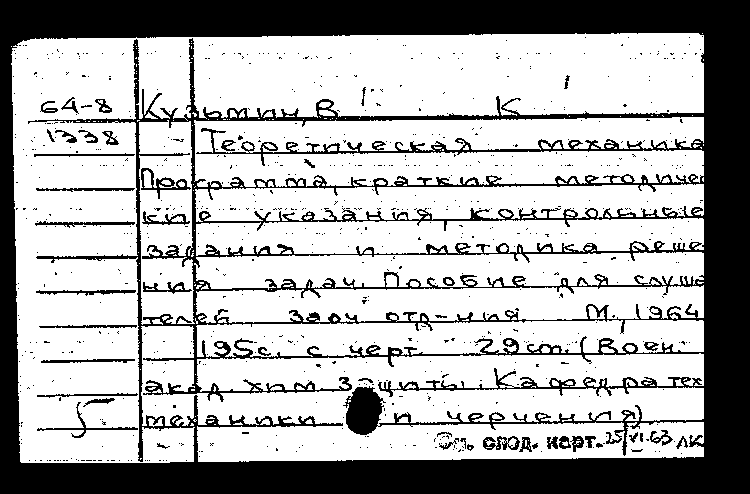 64-8 Кузьмин, В К
1338 Теоретическая механика
Программа, краткие методичес
кие указания, контрольные
задания и методика реше
ния задач. Пособие для слуша
телей заоч отд-ния. М., 1964
195с. с черт 29см. (Воен.
акад. хим защиты. Кафедра тех
механики и черчения)
См. след. карт. 25/VI.63 ЛК